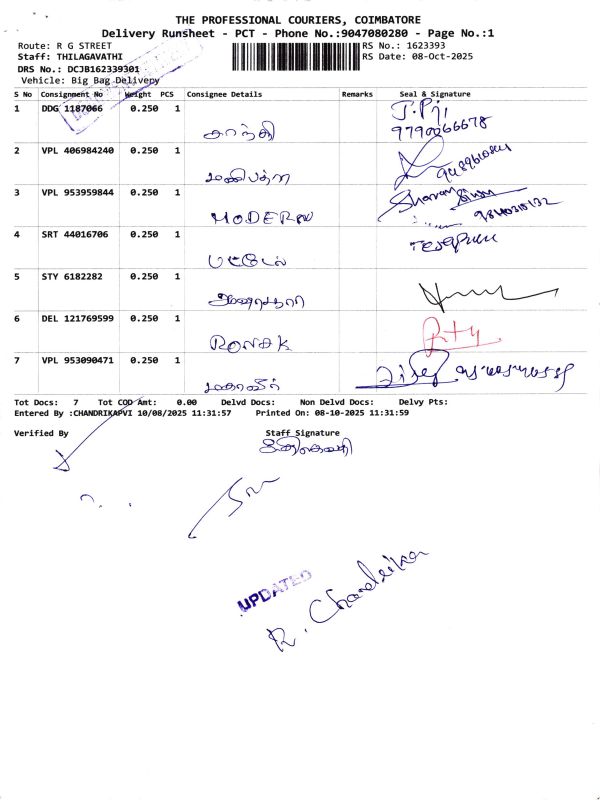 THE PROFESSIONAL COURIERS, COIMBATORE
Delivery Runsheet - PCT - Phone No.:9047080280 - Page No.:1
Route: R G STREET RS No.: 1623393
Staff: THILAGAVATHI RS Date: 08-Oct-2025
DRS No.: DCJB162339301
Vehicle: Big Bag Delivery
S No Consignment No Weight PCS Consignee Details Remarks Seal & Signature
1 DDG 1187066 0.250 1
காந்தி 9790066678
2 VPL 406984240 0.250 1
3 VPL 953959844 0.250 1
MODERN
4 SRT 44016706 0.250 1
பட்டேல்
5 STY 6182282 0.250 1
6 DEL 121769599 0.250 1
RONAK
7 VPL 953090471 0.250 1
மகாவீர்
Tot Docs: 7 Tot COD Amt: 0.00 Delvd Docs: Non Delvd Docs: Delvy Pts:
Entered By :CHANDRIKAPVI 10/08/2025 11:31:57 Printed On: 08-10-2025 11:31:59
Verified By Staff Signature
UPDATED
R. Chandrika